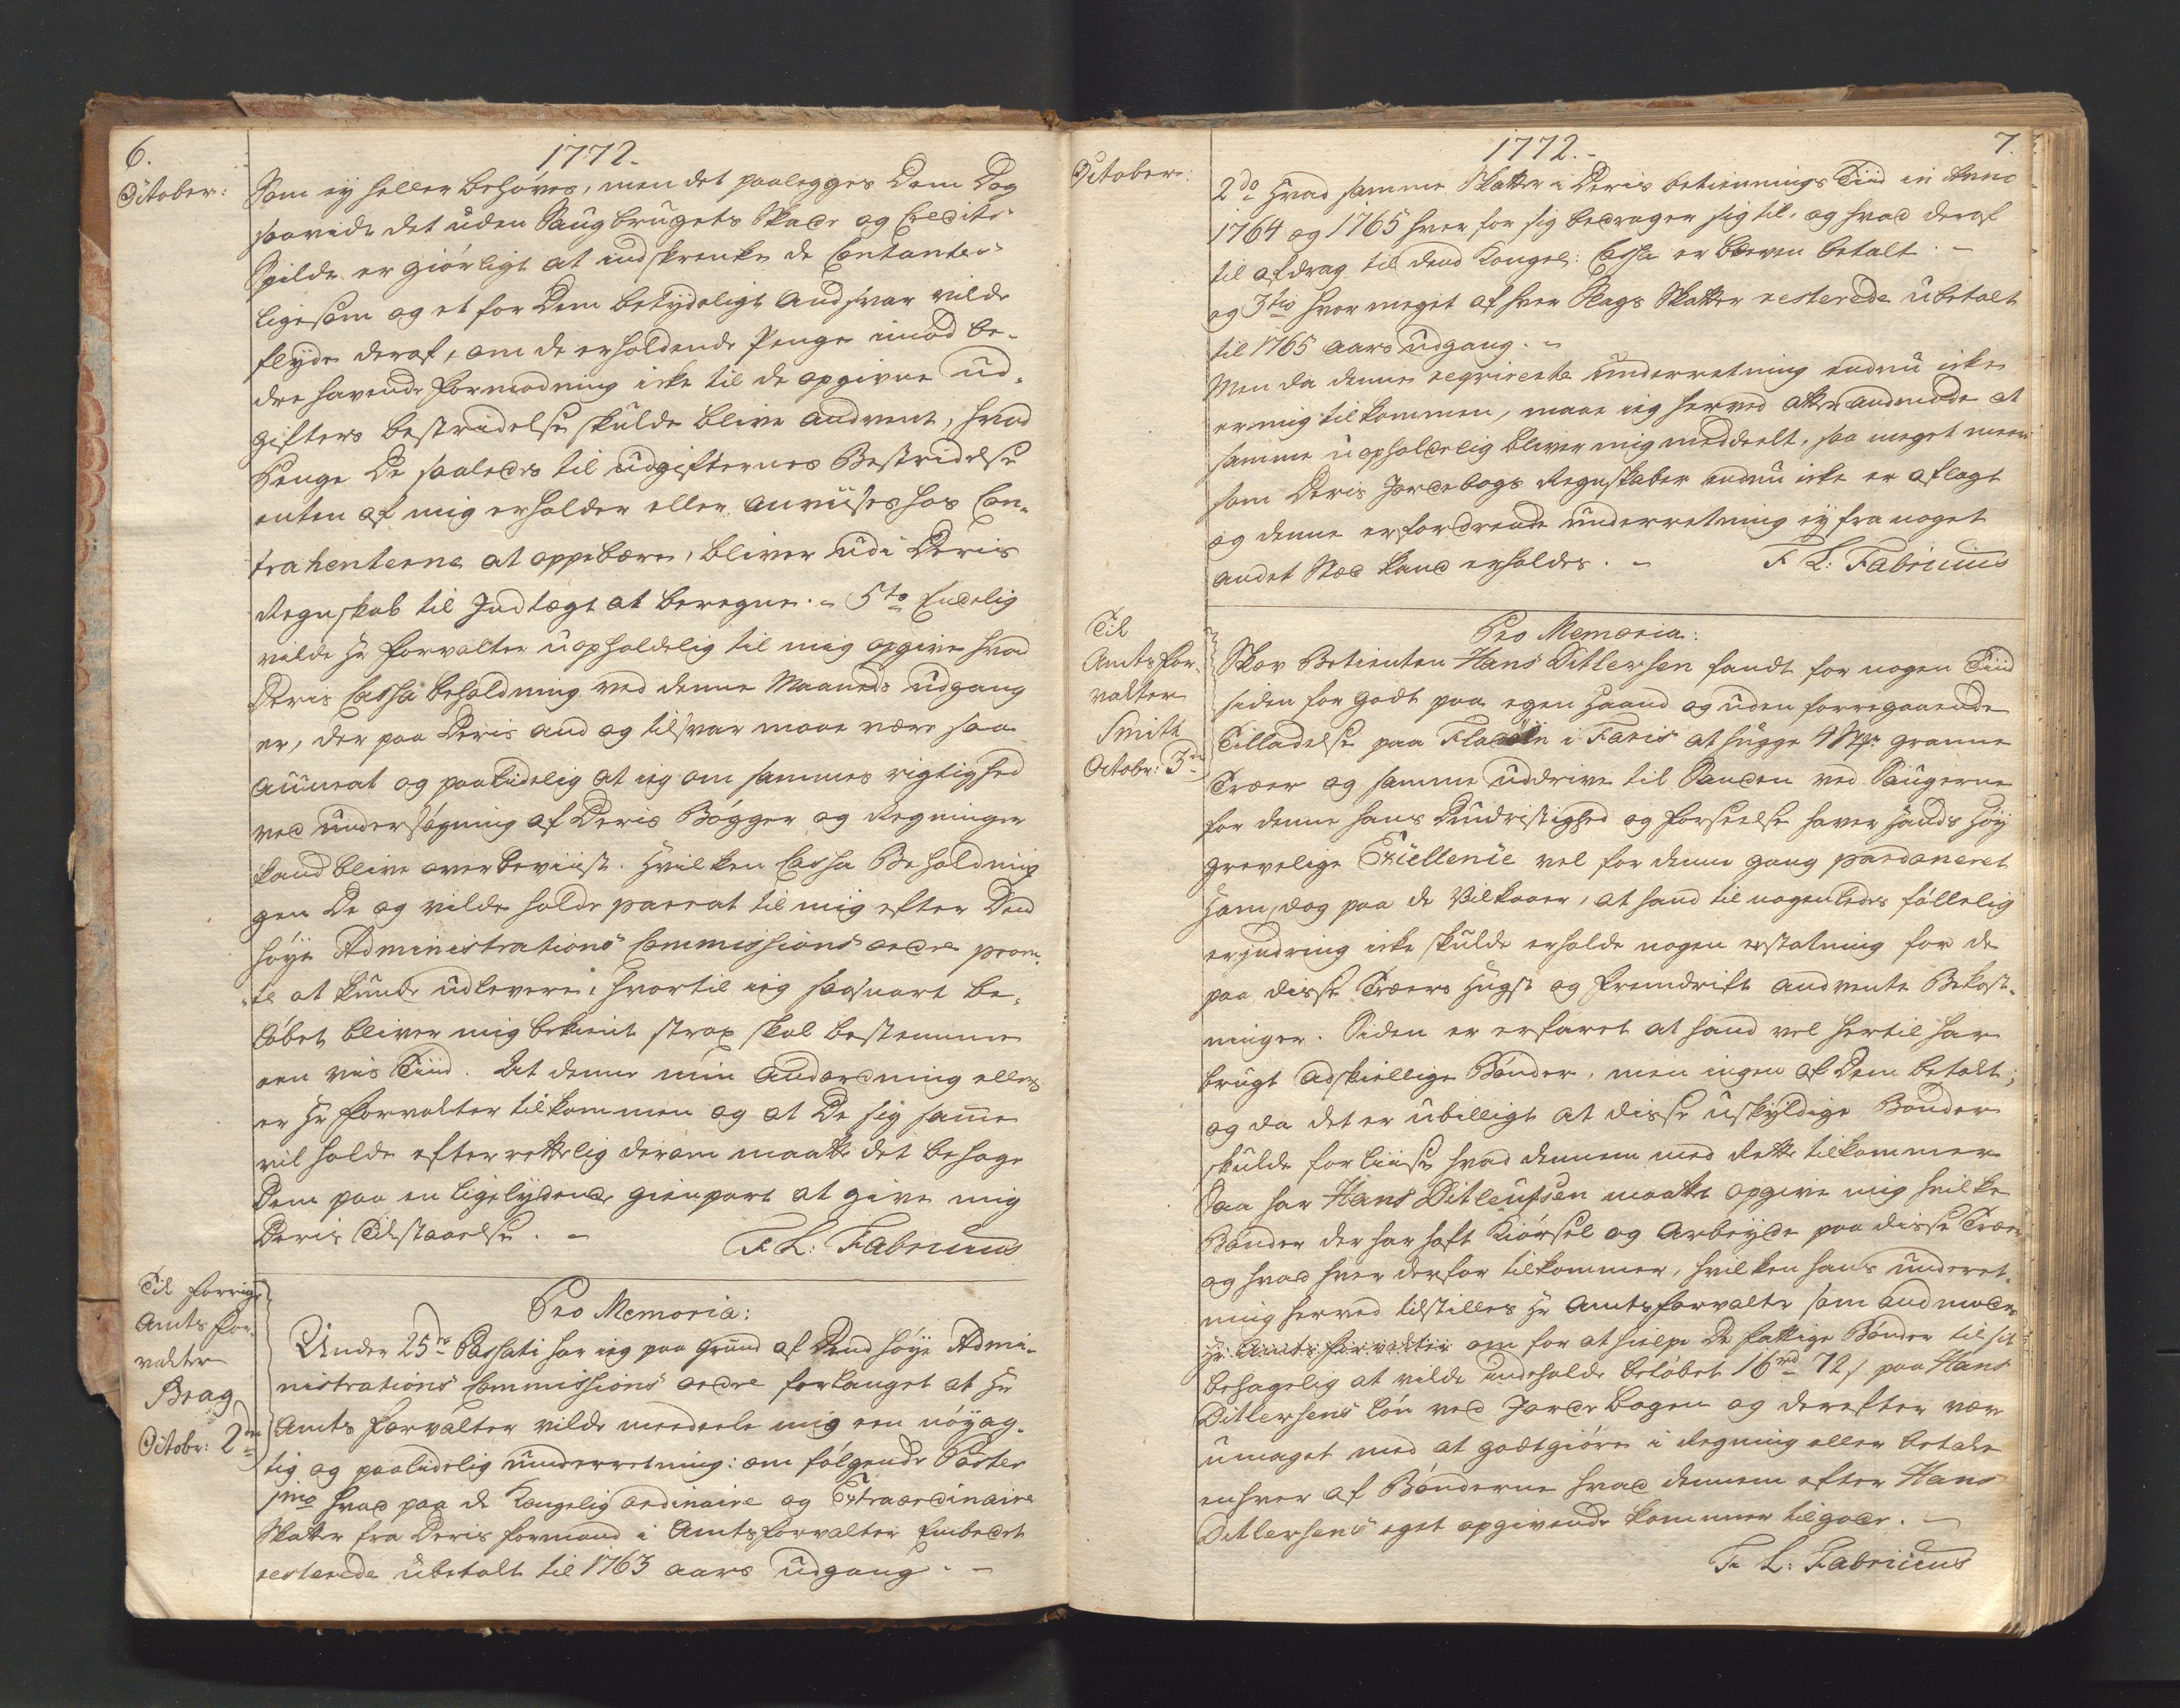 6.
1772.
October:
Som ey heller behøves, men det paalegges Dem Dog
saavidt det uden Saugbrugets Skade og Credits
Spilde er giørligt at indskrenke de Contanter
ligesom og et for Dem betydeligt Andsvar vilde
flyde deraf, om de erholdende Penge imod be-
dre havende Formodning icke til de opgivne Ud-
gifters bestridelse skulde blive andvent, hvad
Penge De saaledes til udgifternes Bestridelse
enten af mig erholder eller anviises hos Con-
trahenterne at oppebære, bliver udi Deris
Regnskab til Indtægt at beregne. 5to Endelig
vilde Hr Forvalter uopholdelig til mig opgive hvad
Deris Cassa beholdning ved denne Maaneds udgang
er, der paa Deris and og tilsvar maae være saa
accurat og paalidelig at ieg om sammes rigtighed
ved undersøgning af Deris Bøgger og Regninger
kand blive overbeviist. Hvilken Cassa Beholdning
gen De og vilde holde parat til mig efter Dend
høye Administrations Commissions ordre prom-
te at kunde udlevere, hvortil ieg saasnart be-
løbet bliver mig bekient strax skal bestemme
een vis Tiid. At denne min Andordning ellers
er Hr Forvalter tilkommen og at De sig samme
vil holde efterrettelig derom maatte det behage
Dem paa en ligelydende gienpart at give mig
Deris Tilstaaelse.
F. L: Fabricius
Til forrige
Amtsfor-
valter
Brag
Octobr: 2den
Pro Memoria:
Under 25de Passati har ieg paa Grund af Dend høye Admi-
nistrations Commissions ordre forlanget at Hr
Amts Forvalter vilde meedeele mig een nøyag-
tig og paalidelig Underretning: om følgende Poster
1mo Hvad paa de Kongelig ordinaire og Extraordinaire
Skatter fra Deris Formand i Amtsforvalter Embedet
resterede ubetalt til 1763 aars Udgang.
7.
1772.
October:
2do Hvad samme Skatter i Deris betiennings Tiid in Anno
1764 og 1765 hver for sig bedrager sig til, og hvad deraf
til afdrag til dend Kongel: Cassa er bleven betalt.
og 3tio hvor meget af hver Slags Skatter resterede ubetalt
til 1765 aars Udgang.
Men da denne reqvireerte Underretning endnu icke
er mig tilkommen, maae ieg herved atter andmode at
samme uopholdelig bliver mig meddeelt, saa meget meere
som Deris Jordebogs Regnskaber endnu icke er aflagt
og denne erfordrende Underretning ey fra noget
andet Sted kand erholdes.
F L: Fabricius
Til
Amtsfor-
valter
Smith
Octobr: 3de
Pro Memoria:
Skov Betienten Hans Ditlevsen fandt for nogen Tiid
siden for godt paa egen Haand og uden forregaaende
Tilladelse paa i Faris at hugge granne
Træer og samme uddrive til Randen ved Saugerne
for denne hans Dumdristighed og forseelse haver Hands Høy
grevelige Excellence vel for denne gang pardoneret
Ham, dog paa de Vilkaar, at hand til nogenledes føllelig
erindring icke skulde erholde nogen erstatning for de
paa disse Træers Hugst og Fremdrift andvente Bekost-
ninger. Siden er erfaret at hand vel hertil har
brugt adskiellige Bønder, men ingen af Dem betalt;
og da det er ubilligt at disse uskyldige Bønder
skulde forliise hvad dennem med Rette tilkommer
Saa har Hans Ditleufsen maatte opgive mig hvilke
Bønder der har haft Kiørsel og Arbeyde paa disse Træer
og hvad hver derfor tilkommer, hvilken hans underet-
ning herved tilstilles Hr Amtsforvalter som andmodes
Hr Amts forvalter om for at hielpe De fattige Bønder til sit
behagelig at vilde indeholde beløbet 16rd 72s paa Hans
Ditlevsens løn ved Jordebogen og derefter vær
umaget med at godtgiøre i Regning eller betale
enhver af Bønderne hvad dennem efter Hans
Ditlevsens eget opgivende kommer tilgode.
F. L: Fabricius